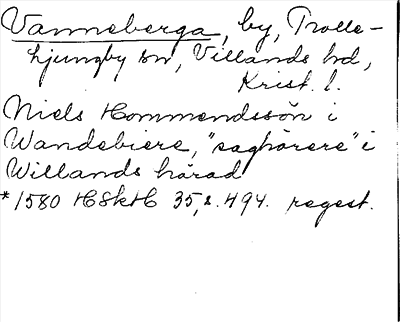 Vanneberga, by, Trolle-
ljungby sn, Villands hd,
Krist. l.
Niels Hommendssön i
Wandebiere, "saghörere" i
Willands härad
*1580 HSkH 35, s. 494. regest.